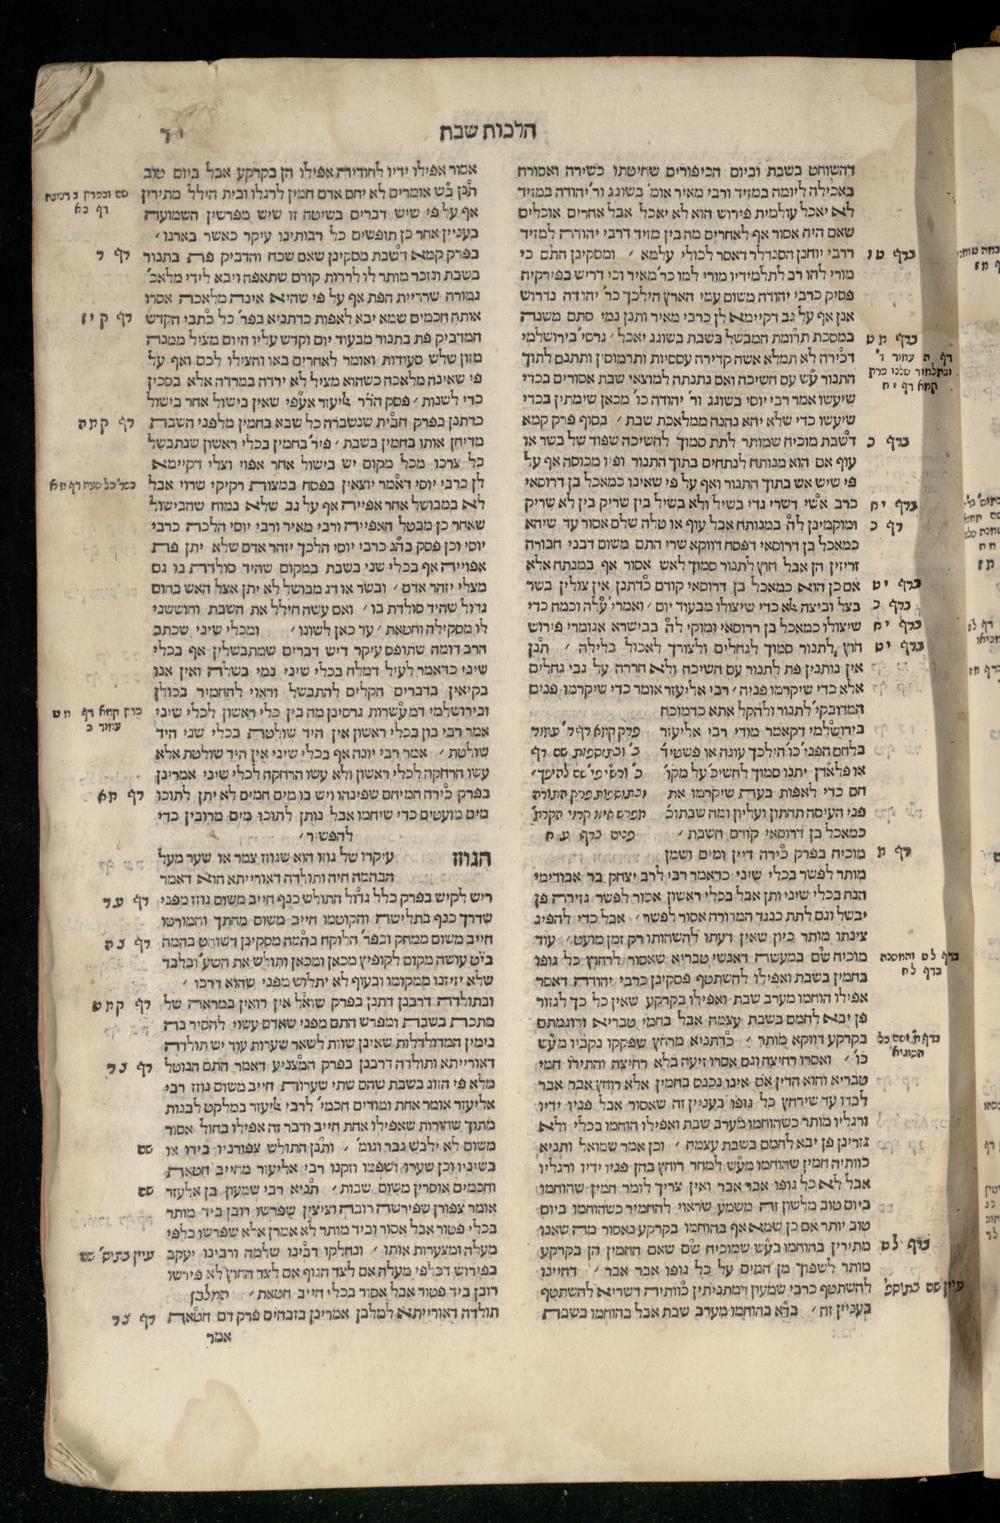 הלכות שבת
דהשוחט בשבת וביום הכיפורים שחיטתו כשירה ואסורה
באכילה ליומה במזיד ורבי מאיר אומ' בשוגג ור' יהודה במזיד
לא יאכל עולמית פירוש הוא לא יאכל אבל אחרים אוכלים
שאם היה אסור אף לאחרים מה בין מזיד דרבי יהודה למזיד
דרבי יוחנן הסנדלר דאסר לכולי עלמא ומסקינן התם כי
מורי להו רב לתלמידיו מורי למו כר' מאיר וכי דריש בפירקיה
פסיק כרבי יהודה משום עמי הארץ הילכך כר' יהודה נדרוש
אנן אף על גב דקיימא לן כרבי מאיר ותנן נמי סתם משנה
במסכת תרומת המבשל בשבת בשוגג יאכל גרסי' בירושלמי
דכירה לא תמלא אשה קדירה עססיות ותרמוסין ותתנם לתוך
התנור ע"ש עם חשיכה ואם נתנתה למוצאי שבת אסורים בכדי
שיעשו אמר רבי יוסי בשוגג ור' יהודה כו' מכאן שימתין בכדי
שיעשו כדי שלא יהא נהנה ממלאכת שבת בסוף פרק קמא
דשבת מוכיח שמותר לתת סמוך לחשיכה שפוד של בשר או
עוף אם הוא מנותח לנתחים בתוך התנור ופיו מכוסה אף על
פי שיש אש בתוך התנור ואף על פי שאינו כמאכל בן דרוסאי
כרב אשי דשרי גדי בשיל ולא בשיל בין שריק בין לא שריק
ומוקמינן לה במנותח אבל עוף או טלה שלם אסור עד שיהא
כמאכל בן דרוסאי דפסח דווקא שרי התם משום דבני חבורה
זריזין הן אבל חוץ לתנור סמוך לאש אסור אף במנתח אלא
אם כן הוא כמאכל בן דרוסאי קודם כדתנן אין צולין בשר
בצל וביצה אלא כדי שיצולו מבעוד יום ואמרי' עלה וכמה כדי
שיצולו כמאכל בן דרוסאי ומוקי לה בבישרא אגומרי פירוש
חוץ לתנור סמוך לגחלים ולצורך לאכול בלילה תנן
אין נותנין פת לתנור עם חשיכה ולא חררה על גבי גחלים
אלא כדי שיקרמו פניה רבי אליעזר אומר כדי שיקרמו פנים
המדובקי' לתנור ולהקל אתא כדמוכח
בירושלמי דקאמר מודי רבי אליעזר
בלחם הפני' כו' הילכך עוגה או פשטיד'
או פלאדן יתנו סמוך לחשיכ' על מקו'
חם כדי לאפות בעוד שיקרמו את
פני העיסה תחתון ועליון ומה שבתוכ'
כמאכל בן דרוסאי קודם השבת
מוכיח בפרק כירה דיין ומים ושמן
מותר לפשר בכלי שיני כדאמר רבי לרב יצחק בר אבודימי
הנח בכלי שיני ותן אבל בכלי ראשון אסור לפשר גזירה פן
יבשל וגם לתת כנגד המדורה אסור לפשר אבל כדי להפיג
צינתו מותר כיון שאין דעתו להשהותו רק זמן מועט עוד
מוכיח שם במעשה דאנשי טבריא שאסור לרחוץ כל גופו
בחמין בשבת ואפילו להשתטף פסקינן כרבי יהודה דאסר
אפילו הוחמו מערב שבת ואפילו בקרקע שאין כל כך לגזור
פן יבא לחמם בשבת עצמה אבל בחמי טבריא ודוגמתם
בקרקע דווקא מותר כדתניא מרחץ שפקקו נקביו מע"ש
כו' ואסרו רחיצה וגם אסרו זיעה בלא רחיצה והתירו חמי
טבריא והוא הדין אם אינו נכנס בחמין אלא רוחץ אבר אבר
לבדו עד שירחץ כל גופו בעניין זה שאסור אבל פניו ידיו
ורגליו מותר כשהוחמו מערב שבת ואפילו הוחמו בכלי ולא
גזרינן פן יבא לחמם בשבת עצמה וכן אמר שמואל ותניא
כוותיה חמין שהוחמו מע"ש למחר רוחץ בהן פניו ידיו ורגליו
אבל לא כל גופו אבר אבר ואין צריך לומר חמין שהוחמו
ביום טוב מלשון זה משמע שראוי להחמיר כשהוחמו ביום
טוב יותר אם כן שמא אף בהוחמו בקרקע נאסור מה שאנו
מתירין בהוחמו בע"ש שמוכיח שם שאם החמין הן בקרקע
מותר לשפוך מן המים על כל גופו אבר אבר דהיינו
להשתטף כרבי שמעון דמתניתין כוותיה דשריא להשתטף
בעניין זה בד"א בהוחמו מערב שבת אבל בהוחמו בשבת
אסור אפילו ידיו לחודיה אפילו הן בקרקע אבל ביום טוב
תנן ב"ש אומרים לא יחם אדם חמין לרגליו ובית הילל מתירין
אף על פי שיש דברים בשיטה זו שיש מפרשין השמועה
בעניין אחר כן תופשים כל רבותינו עיקר כאשר בארנו
בפרק קמא דשבת מסקינן שאם שכח והדביק פת בתנור
בשבת ונזכר מותר לו לרדות קודם שתאפה ויבא לידי מלאכ'
גמורה שרדיית הפת אף על פי שהיא אינה מלאכה אסרו
אותה חכמים שמא יבא לאפות כדתניא בפר' כל כתבי הקדש
המדביק פת בתנור מבעוד יום וקדש עליו היום מציל ממנה
מזון שלש סעודות ואומר לאחרים באו והצילו לכם ואף על
פי שאינה מלאכה כשהוא מציל לא ירדה במרדה אלא בסכין
כדי לשנות פסק הרר' אליעזר אעפ"י שאין בישול אחר בישול
כדתנן בפרק חבית שנשברה כל שבא בחמין מלפני השבת
מדיחן אותו בחמין בשבת פיר' בחמין בכלי ראשון שנתבשל
כל צרכו מכל מקום יש בישול אחר אפוי וצלי דקיימא
לן כרבי יוסי דאמר יוצאין בפסח במצות רקיקי שרוי אבל
לא במבושל אחר אפייה אף על גב שלא נמוח שהבישול
שאחר כן מבטל האפייה ורבי מאיר ורבי יוסי הלכה כרבי
יוסי וכן פסק בה"ג כרבי יוסי הלכך יזהר אדם שלא יתן פת
אפויה אף בכלי שני בשבת במקום שהיד סולדת בו גם
מצלי יזהר אדם ובשר או דג מבושל לא יתן אצל האש בחום
גדול שהיד סולדת בו ואם עשה חילל את השבת וחוששני
לו מסקילה וחטאת עד כאן לשונו ומכלי שיני שכתב
הרב דומה שתופס עיקר דיש דברים שמתבשלין אף בכלי
שיני כדאמר לעיל דמלח בכלי שיני נמי בשלה ואין אנו
בקיאין בדברים הקלים להתבשל וראוי להחמיר בכולן
ובירושלמי דמעשרות גרסינן מה בין כלי ראשון לכלי שיני
אמר רבי בון בכלי ראשון אין היד שולטת בכלי שני היד
שולטת אמר רבי יונה אף בכלי שיני אין היד שולטת אלא
עשו הרחקה לכלי ראשון ולא עשו הרחקה לכלי שיני אמרינן
בפרק כירה המיחם שפינהו ויש בו מים חמים לא יתן לתוכו
מים מועטים כדי שיחמו אבל נותן לתוכו מים מרובין כדי
להפשיר
הגוזז עיקרו של גוזז הוא שגוזז צמר או שער מעל
הבהמה חיה ותולדה דאורייתא הוא דאמר
ריש לקיש בפרק כלל גדול התולש כנף חייב משום גוזז מפני
שדרך כנף בתלישה והקוטמו חייב משום מחתך והמורטו
חייב משום ממחק ובפר' הלוקח בהמה מסקינן דשוחט בהמה
בי"ט עושה מקום לקופיץ מכאן ומכאן ותולש את השע' ובלבד
שלא יזיזנו ממקומו ובעוף לא יתלוש מפני שהוא דרכו
ובתולדה דרבנן דתנן בפרק שואל אין רואין במראה של
מתכת בשבת ומפרש התם מפני שאדם עשוי להסיר בה
נימין המדולדלות שאינן שוות לשאר שערות עוד יש תולדה
דאורייתא ותולדה דרבנן בפרק המצניע דאמר התם הנוטל
מלא פי הזוג בשבת שהם שתי שערות חייב משום גוזז רבי
אליעזר אומר אחת ומודים חכמי' לרבי אליעזר במלקט לבנות
מתוך שחורות שאפילו אחת חייב ודבר זה אפילו בחול אסור
משום לא ילבש גבר וגומ' ותנן התולש צפורניו בידו או
בשיניו וכן שערו ושפמו וזקנו רבי אליעזר מחייב חטאת
וחכמים אוסרין משום שבות תניא רבי שמעון בן אלעזר
אומר צפורן שפירשה רובה וציצין שפרשו רובן ביד מותר
בכלי פטור אבל אסור וביד מותר לא אמרן אלא שפרשו כלפי
מעלה ומצערות אותו ונחלקו רבינו שלמה ורבינו יעקב
בפירוש דכלפי מעלה אם לצד הגוף אם לצד החוץ לא פירשו
רובן ביד פטור אבל אסור בכלי חייב חטאת המלבן
תולדה דאורייתא למלבן אמרינן בזבחים פרק דם חטאת
אמר
בדף טו
בדף מט
בדף כ
בדף יח
דף כ
בדף יט
בדף כ
בדף יח
בדף יט
דף מ
בדף לט
דף ד
דף קיז
דף קמה
דף מא
דף עד
דף קמט
דף צד
שם
שם
עיין בתוס' שם
דף צד